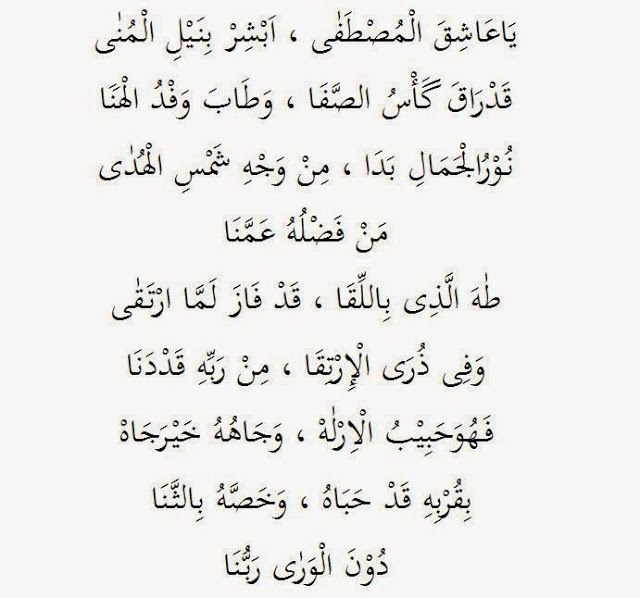 يَاعَاشِقَ الْمُصْطَفٰى ، اَبْشِرْ بِنَيْلِ الْمُنٰى
قَدْرَاقَ كَأْسُ الصَّفَا ، وَطَابَ وَفْدُ الْهَنَا
نُوْرُالْجَمَالِ بَدَا ، مِنْ وَجْهِ شَمْسِ الْهُدٰى
مَنْ فَضْلُهُ عَمَّنَا
طٰهَ الَّذِى بِاللِّقَا ، قَدْ فَازَ لَمَّا ارْتَقٰى
وَفِى ذُرَى الْإِرْتِقَا ، مِنْ رَبِّهِ قَدْدَنَا
فَهُوَحَبِيْبُ الْاِرْلٰهْ ، وَجَاهُهُ خَيْرَجَاهْ
بِقُرْبِهِ قَدْ حَبَاهُ ، وَخَصَّهُ بِالثَّنَا
دُوْنَ الْوَرٰى رَبُّنَا